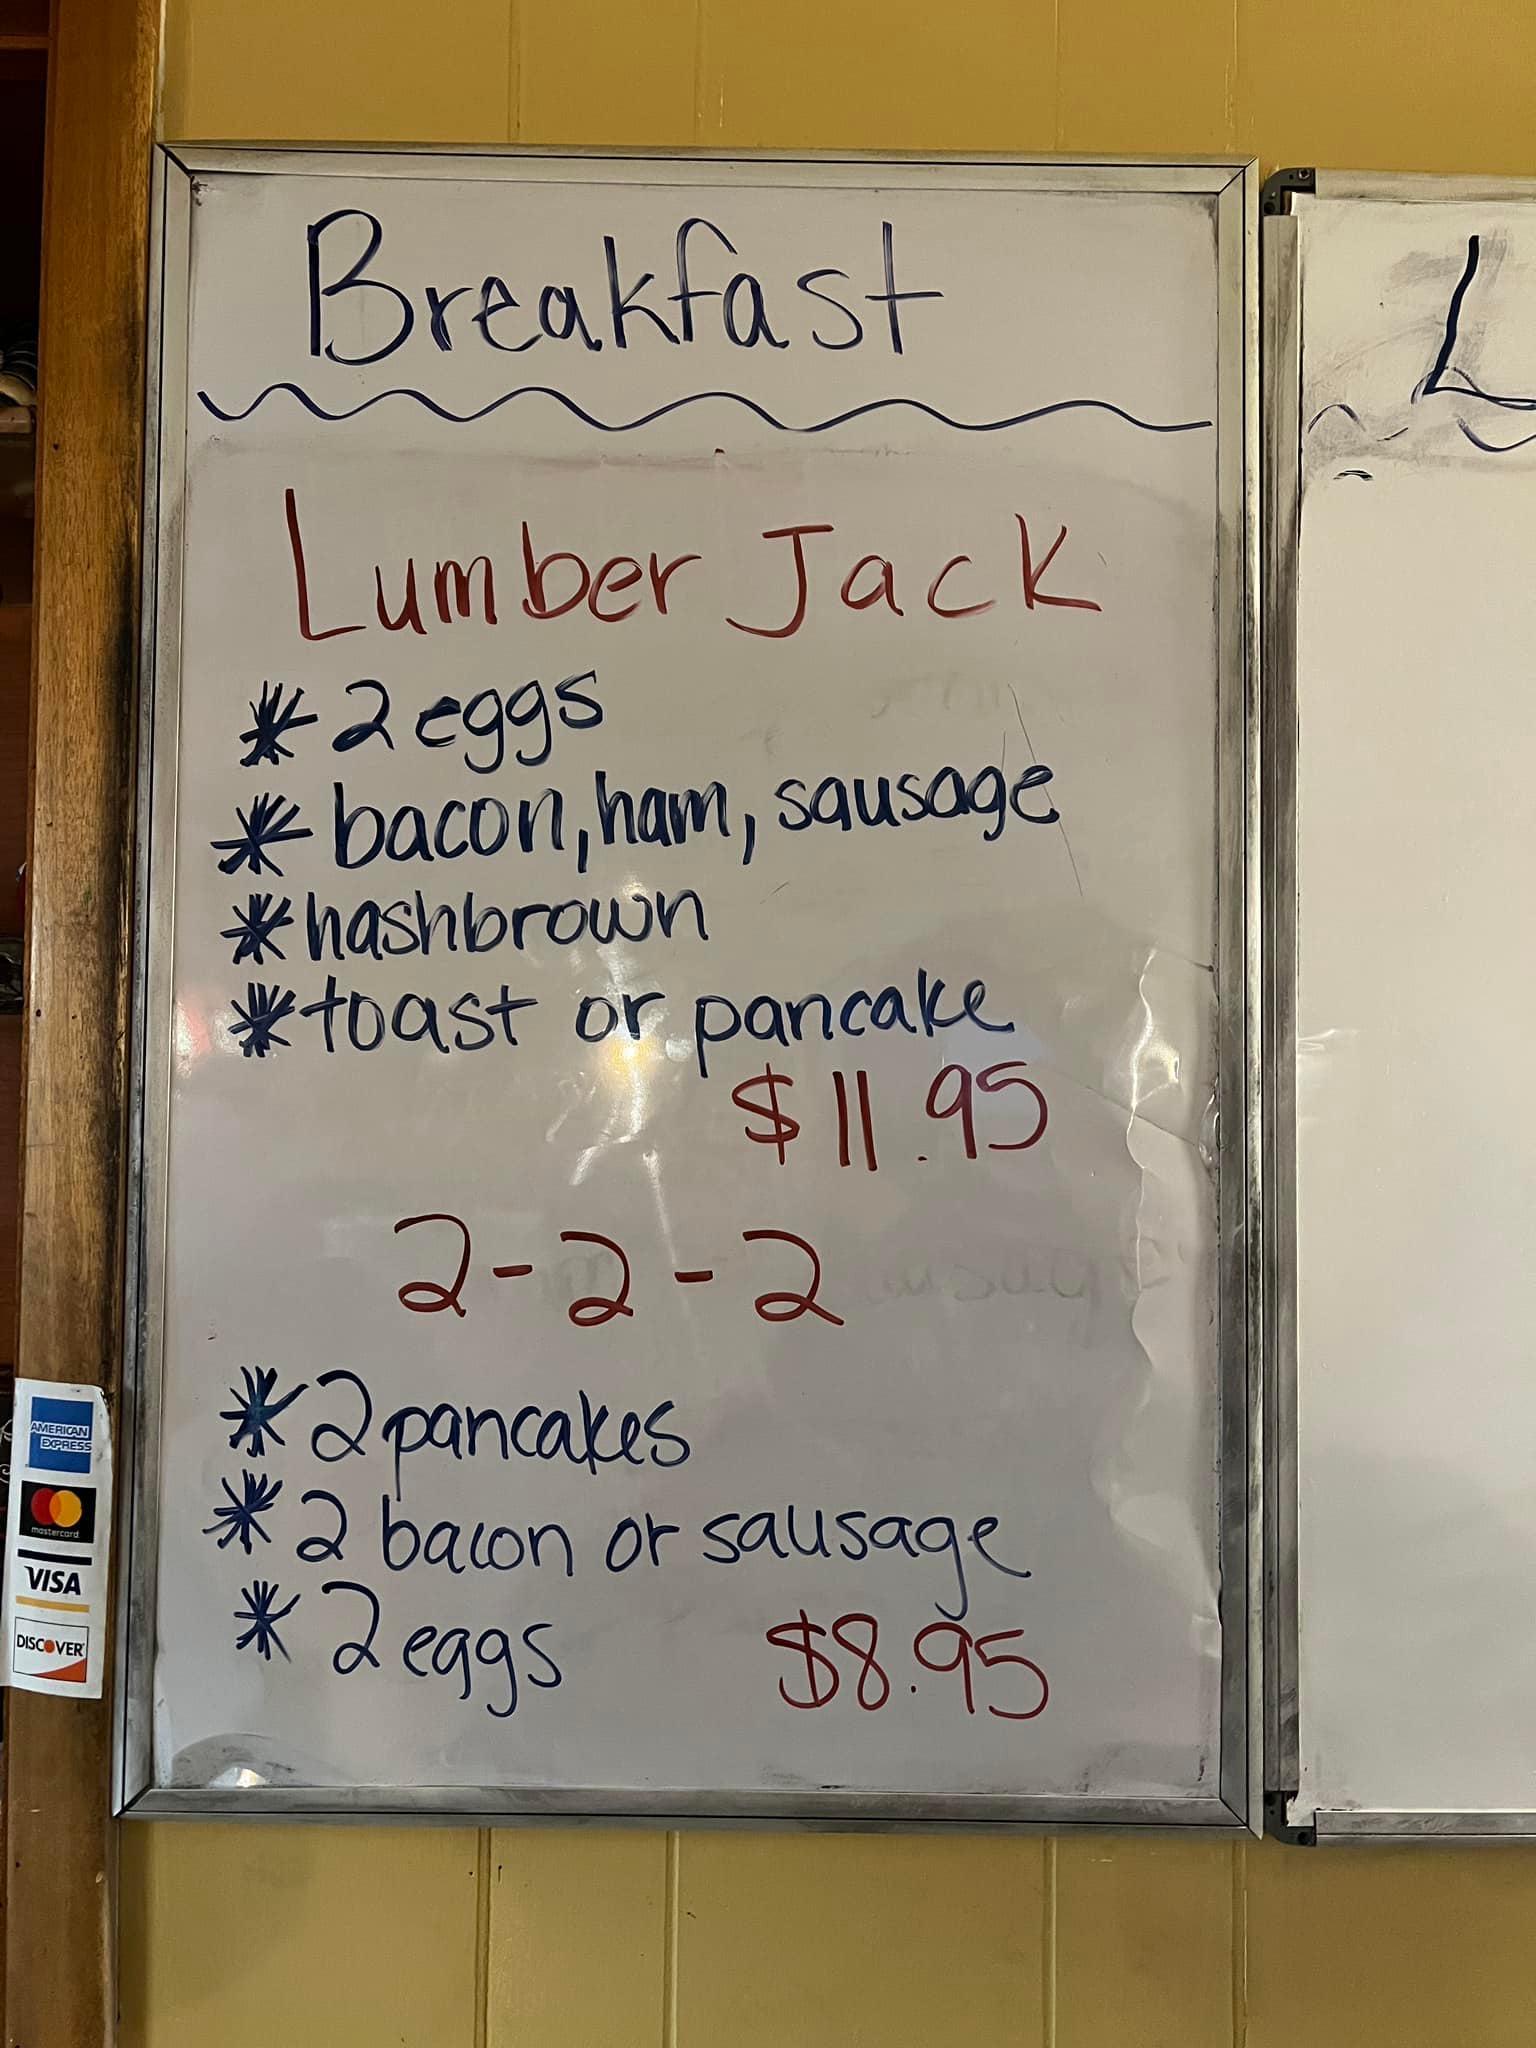 Breakfast
L
Lumber Jack
* 2 eggs
* bacon, ham, sausage
* hashbrown
* toast or pancake
$11.95
2-2-2
* 2 pancakes
* 2 bacon or sausage
* 2 eggs $8.95
AMERICAN
EXPRESS
mastercard
VISA
DISCOVER